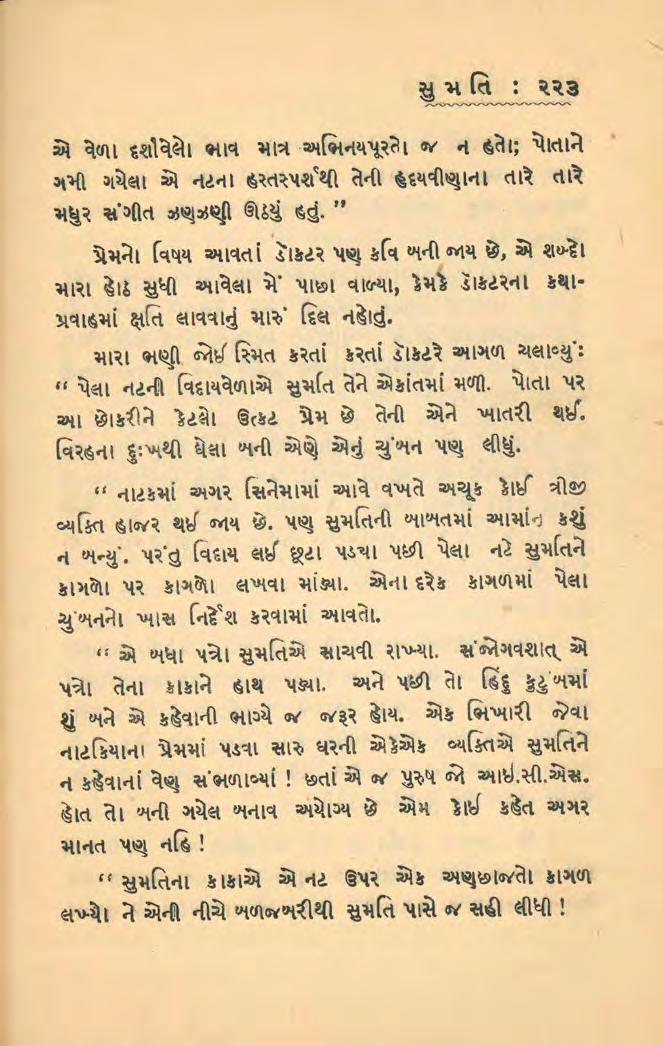 સુમતિ : ૨૨૩
એ વેળા દર્શાવેલો ભાવ માત્ર અભિનયપૂરતો જ ન હતો; પોતાને
ગમી ગયેલા એ નટના હસ્તસ્પર્શથી તેની હૃદયવીણાના તારે તારે
મધુર સંગીત ઝણઝણી ઊઠયું હતું. ”
પ્રેમનો વિષય આવતાં ડૉકટર પણ કવિ બની જાય છે, એ શબ્દો
મારા હોઠ સુધી આવેલા મેં પાછા વાળ્યા, કેમકે ડૉકટરના કથા-
પ્રવાહમાં ક્ષતિ લાવવાનું મારું દિલ નહોતું.
મારા ભણી જોઈ સ્મિત કરતાં કરતાં ડૉકટરે આગળ ચલાવ્યું :
“ પેલા નટની વિદાયવેળાએ સુમતિ તેને એકાંતમાં મળી. પોતા પર
આ છોકરીને કેટલો ઉત્કટ પ્રેમ છે તેની એને ખાતરી થઈ.
વિરહના દુઃખથી ઘેલા બની એણે એનું ચુંબન પણ લીધું.
“ નાટકમાં અગર સિનેમામાં આવે વખતે અચૂક કોઈ ત્રીજી
વ્યક્તિ હાજર થઈ જાય છે. પણ સુમતિની બાબતમાં આમાંનું કશું
ન બન્યું. પરંતુ વિદાય લઈ છૂટા પડયા પછી પેલા નટે સુમતિને
કાગળો પર કાગળો લખવા માંડ્યા. એના દરેક કાગળમાં પેલા
ચુંબનનો ખાસ નિર્દેશ કરવામાં આવતો.
“ એ બધા પત્રો સુમતિએ સાચવી રાખ્યા. સંજોગવશાત્ એ
પત્રો તેના કાકાને હાથ પડ્યા. અને પછી તો હિંદુ કુટુંબમાં
શું બને એ કહેવાની ભાગ્યે જ જરૂર હોય. એક ભિખારી જેવા
નાટકિયાના પ્રેમમાં પડવા સારુ ઘરની એકેએક વ્યક્તિએ સુમતિને
ન કહેવાનાં વેણ સંભળાવ્યાં ! છતાં એ જ પુરુષ જો આઇ.સી.એસ.
હોત તો બની ગયેલ બનાવ અયોગ્ય છે એમ કોઈ કહેત અગર
માનત પણ નહિ !
“ સુમતિના કાકાએ એ નટ ઉપર એક અણછાજતો કાગળ
લખ્યો ને એની નીચે બળજબરીથી સુમતિ પાસે જ સહી લીધી !